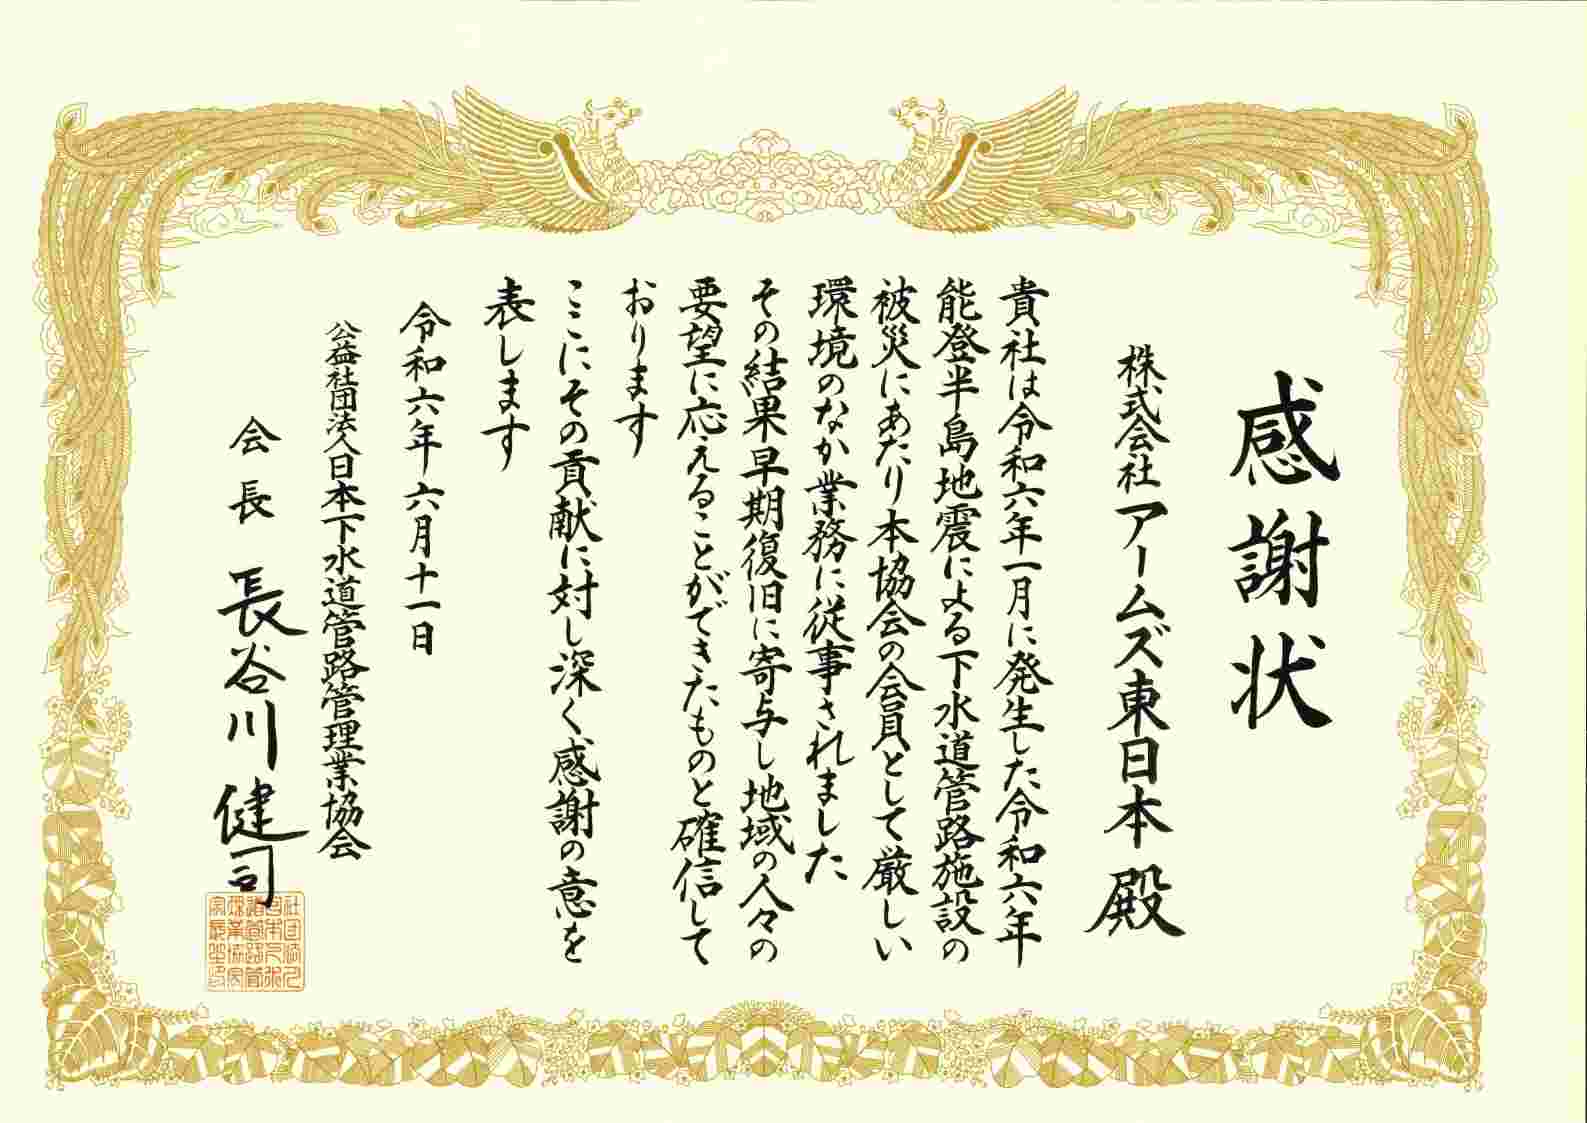 感謝状
株式会社アームズ東日本 殿
貴社は令和六年一月に発生した令和六年
能登半島地震による下水道管路施設の
被災にあたり本協会の会員として厳しい
環境のなか業務に従事されました
その結果早期復旧に寄与し地域の人々の
要望に応えることができたものと確信して
おります
ここにその貢献に対し深く感謝の意を
表します
令和六年六月十一日
公益社団法人日本下水道管路管理業協会
会長 長谷川健司